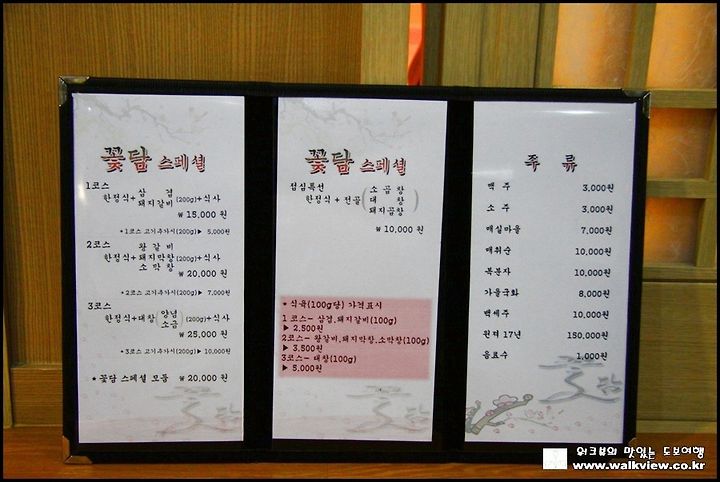 꽃담 스페셜
1코스
삼 겹
한정식+돼지갈비(200g)+식사
₩ 15,000 원
*1코스 고기추가시(200g)▶ 5,000원
2코스
왕 갈 비
한정식+돼지막창(200g)+식사
소 막 창
₩ 20,000 원
*2코스 고기추가시(200g)▶ 7,000원
3코스
한정식+대창(양념 소금)(200g)+식사
₩ 25,000 원
*3코스 고기추가시(200g)▶ 10,000원
*꽃담 스페셜 모둠 ₩ 20,000 원
꽃담 스페셜
점심특선
소 곱 창
한정식 + 전골 ( 대 창 )
돼지곱창
₩ 10,000 원
* 식육(100g당) 가격표시
1 코스- 삼겹,돼지갈비(100g)
▶ 2,500원
2코스- 왕갈비,돼지막창,소막창(100g)
▶ 3,500원
3코스- 대창(100g)
▶ 5,000원
꽃담
주 류
맥 주 3,000원
소 주 3,000원
매실마을 7,000원
매취순 10,000원
복분자 10,000원
가을국화 8,000원
백세주 10,000원
윈저 17년 150,000원
음료수 1,000원
꽃담
워크뷰의 맛있는 도보여행
www.walkview.co.kr